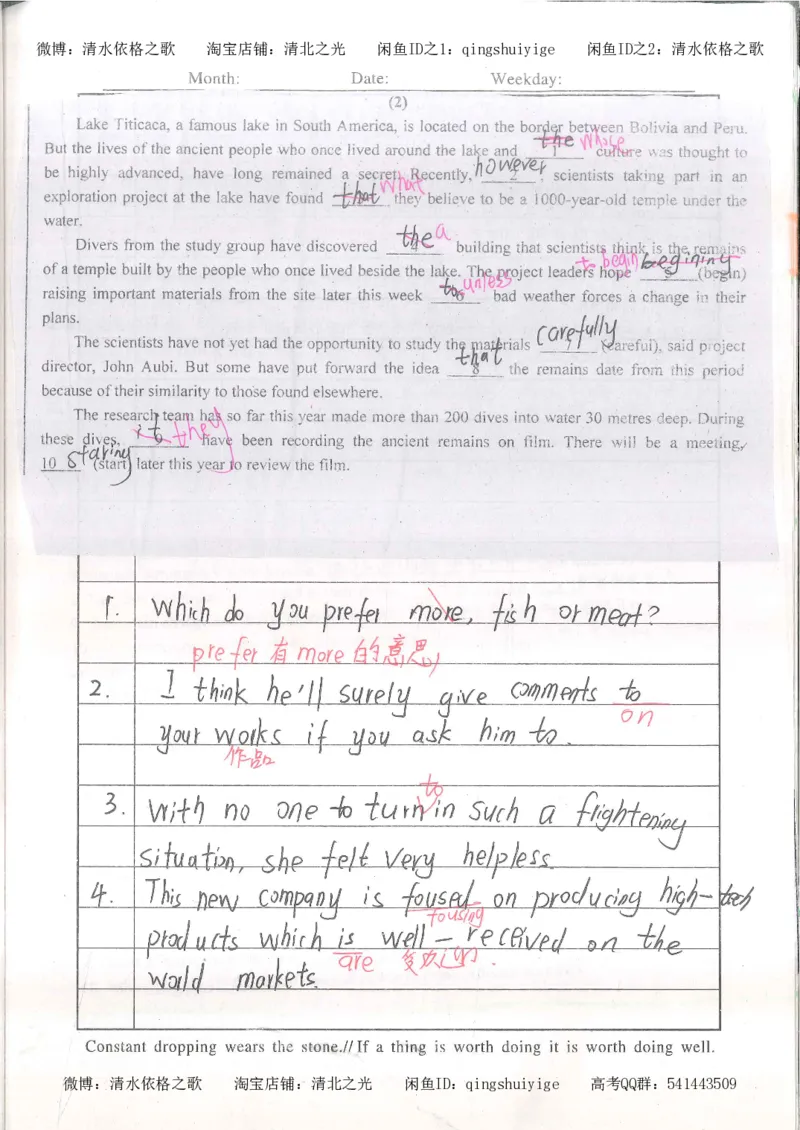 微博：清水依格之歌 淘宝店铺：清北之光 闲鱼ID之1：qingshuiyige 闲鱼ID之2：清水依格之歌
Month: Date: Weekday:
(2)
Lake Titicaca, a famous lake in South America, is located on the border between Bolivia and Peru.
the whose
But the lives of the ancient people who once lived around the lake and 1 culture was thought to
however
be highly advanced, have long remained a secret. Recently, 2 , scientists taking part in an
that what
exploration project at the lake have found they believe to be a 1000-year-old temple under the
water.
the a
Divers from the study group have discovered 4 building that scientists think is the remains
to begin begining
of a temple built by the people who once lived beside the lake. The project leaders hope 5 (begin)
to unless
raising important materials from the site later this week 6 bad weather forces a change in their
plans.
carefully
The scientists have not yet had the opportunity to study the materials 7 (careful), said project
that
director, John Aubi. But some have put forward the idea 8 the remains date from this period
because of their similarity to those found elsewhere.
The research team has so far this year made more than 200 dives into water 30 metres deep. During
it they
these dives, 9 have been recording the ancient remains on film. There will be a meeting,
staring
10 (start) later this year to review the film.
1. Which do you prefer more, fish or meat?
prefer 有 more 的意思
2. I think he'll surely give comments to
on
your works if you ask him to.
作品
to
3. With no one to turn in such a frightening
situation, she felt very helpless.
4. This new company is foused on producing high-tech
fousing
products which is well-received on the
are 复数的
world markets.
Constant dropping wears the stone.//If a thing is worth doing it is worth doing well.
微博：清水依格之歌 淘宝店铺：清北之光 闲鱼ID：qingshuiyige 高考QQ群：541443509